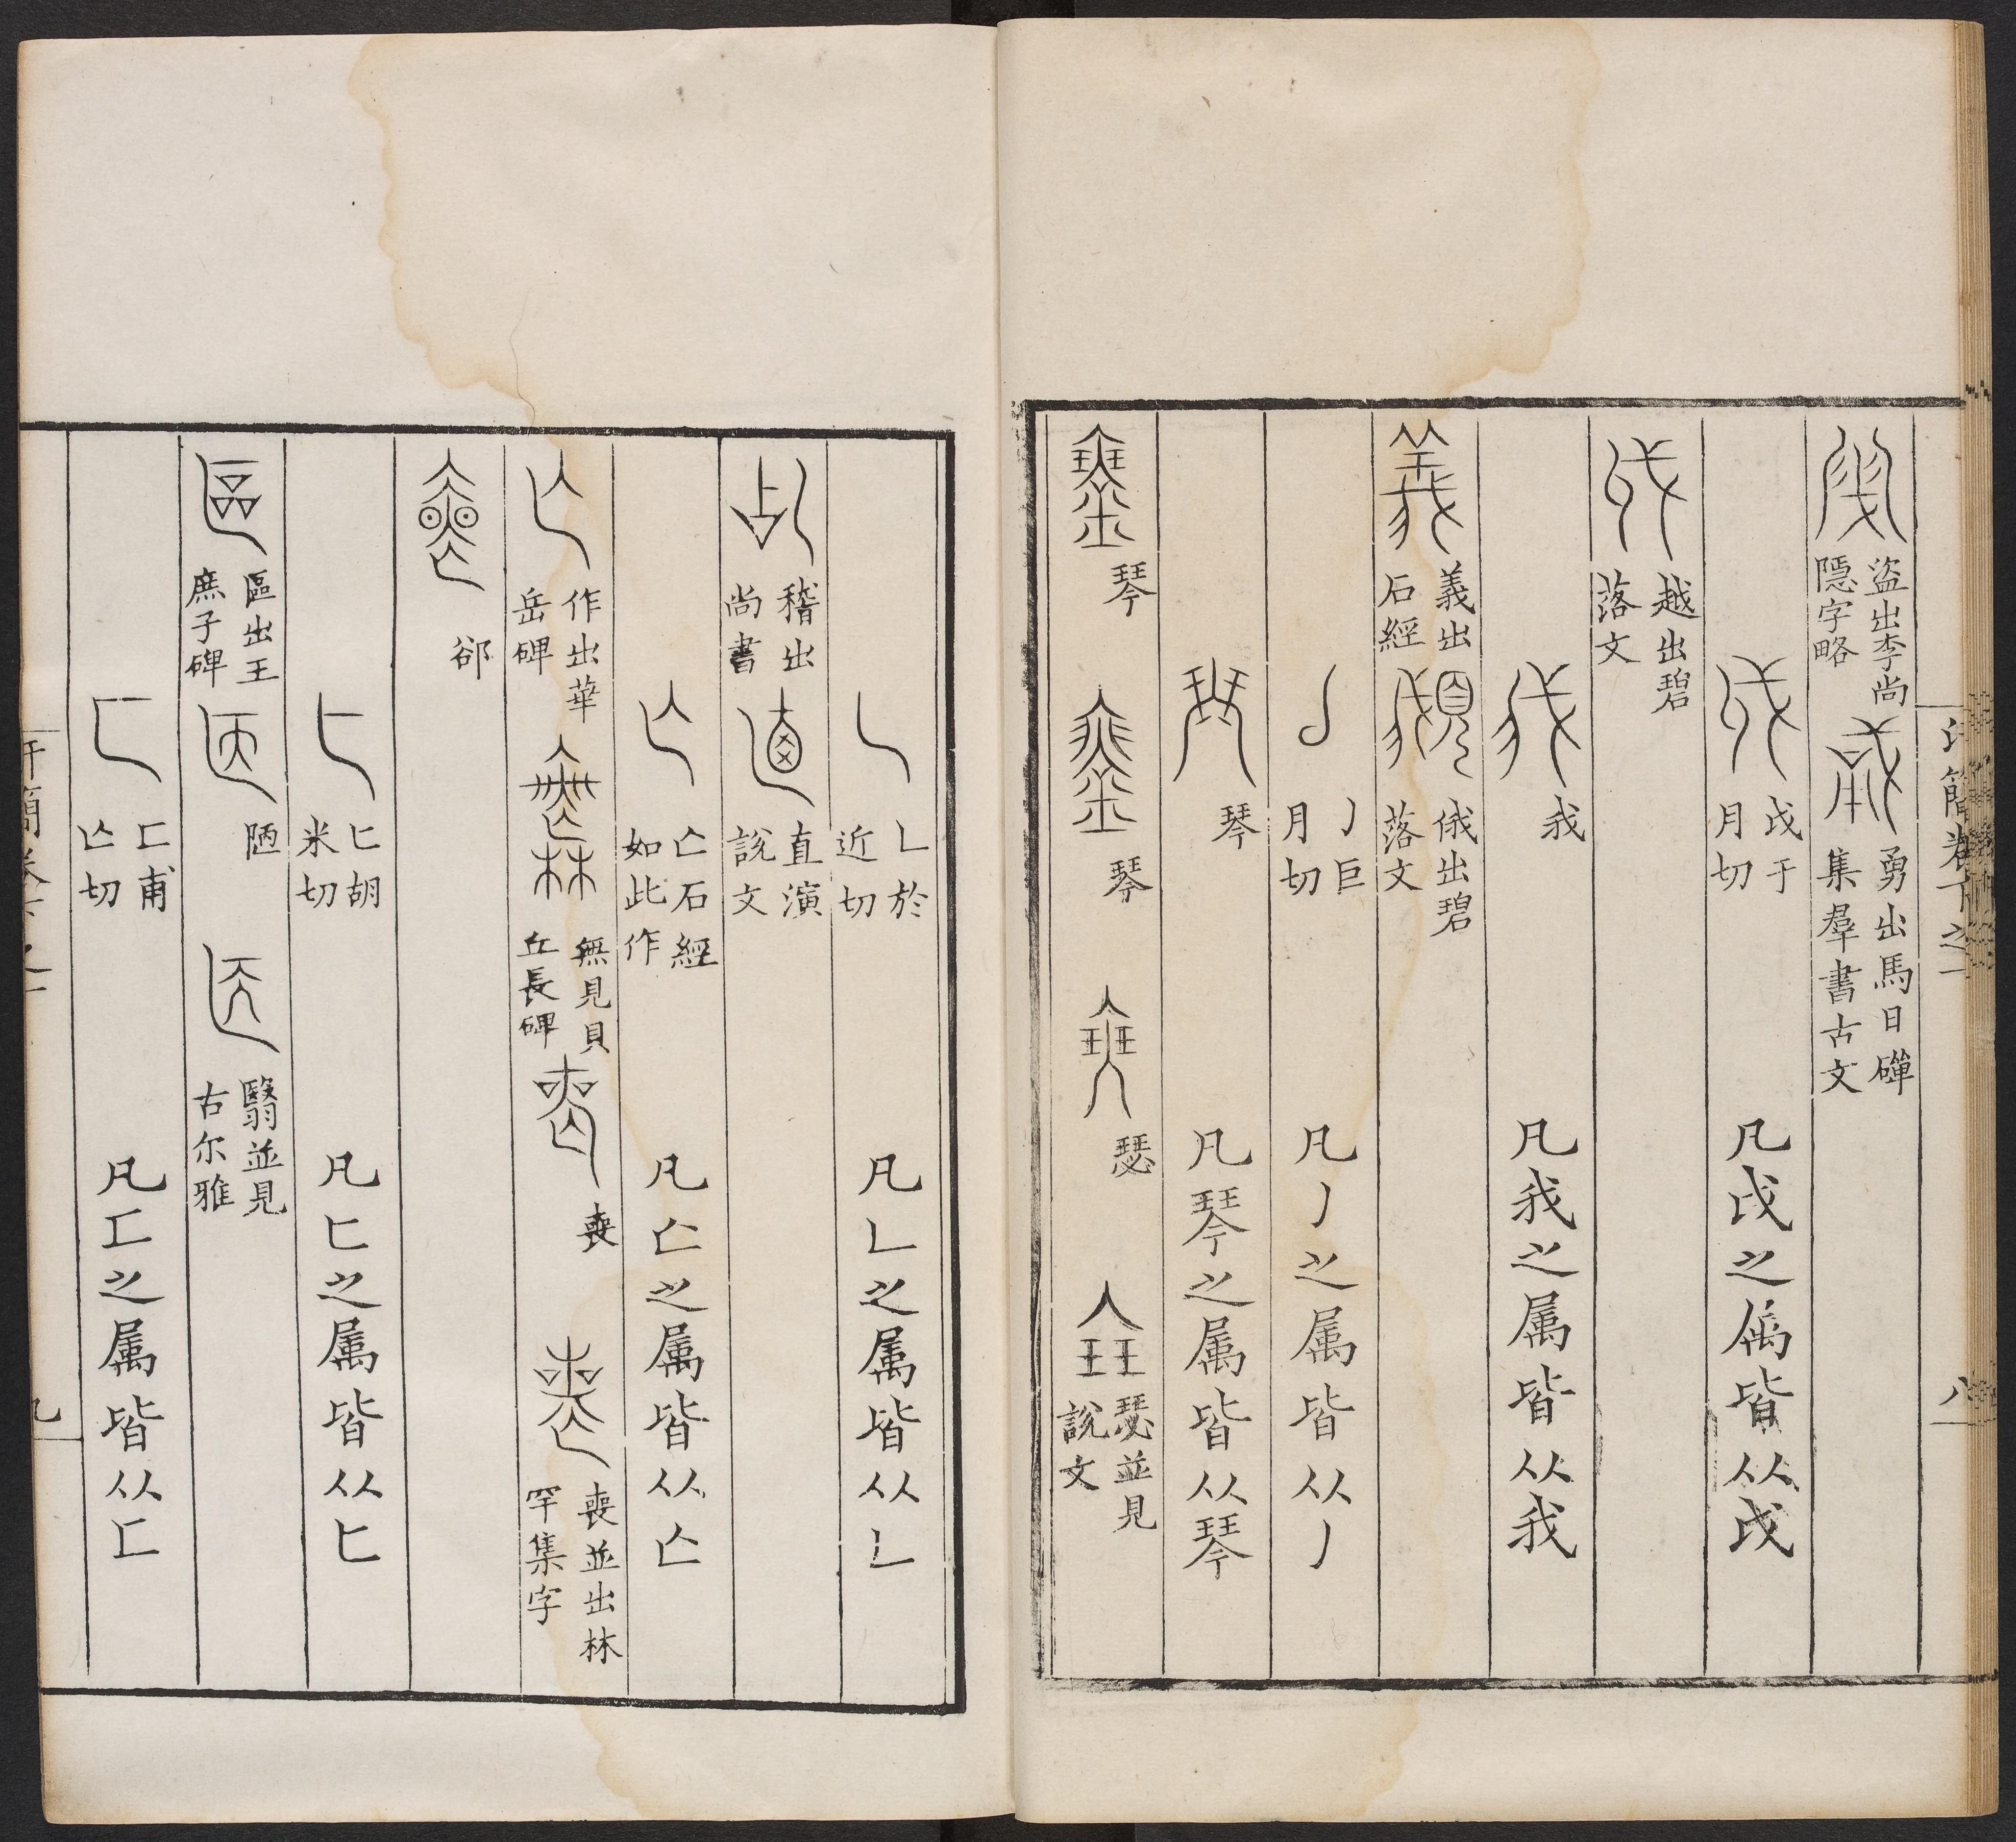 汗簡卷下之一
八
盜出李尚隱字略 勇出馬日磾集羣書古文
戉于月切 凡戉之属皆从戉
越出碧落文
我 凡我之属皆从我
義出石經 俄出碧落文
亅巨月切 凡亅之属皆从亅
琴 凡琴之属皆从琴
琴 琴 瑟 瑟並見說文
乚於近切 凡乚之属皆从乚
稽出尚書 直演說文
亾石經如此作 凡亾之属皆从亾
作出華岳碑 無見貝丘長碑 喪 喪並出林罕集字
郤
匸胡米切 凡匸之属皆从匸
區出王庶子碑 陋 翳並見古尔雅
匚甫亾切 凡匚之属皆从匚
汗簡卷下之一
九